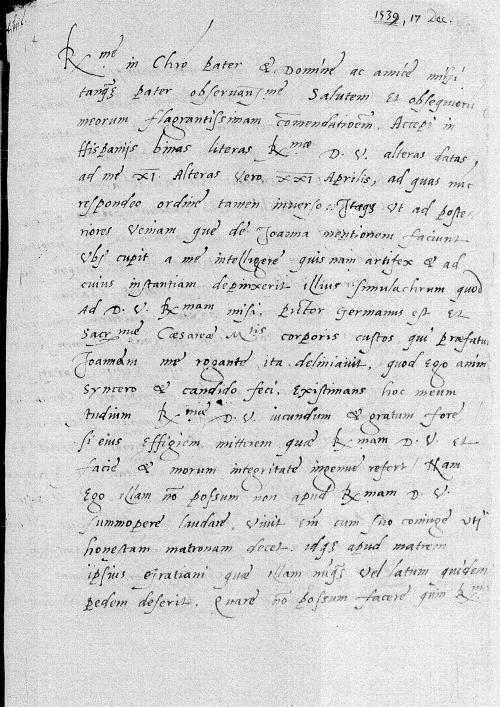 1539, 17 Dec.
R.me in Chro pater & Domine ac amice mihi
tanq3 pater observan.me Salutem et obsequioru
meorum flagrantissimam comendatioem. Accepi in
Hispanijs binas literas R.mae D. V. alteras datas
ad me XI. Alteras vero XXI Aprilis, ad quas nuc
respondeo ordine tamen inverso. Itaq3 ut ad poste
riores veniam que de Joanna mentionem faciunt
Ubi cupit a me intelligere quis nam artifex & ad
cuius instantiam depinxerit illius simulachrum quod
ad D. V. R.mam misi. Pictor Germanus est et
Sacr.mae Caesareae M.tis corporis custos qui praefatu
Joannam me rogante ita deliniavit, quod ego anim
syncero & candido feci. Existimans hoc meum
studium R.mae D. V. iucundum & gratum fore
si eius effigiem mitterem quae R.mam D. V. et
facie & morum integritate ingenue refert. Nam
Ego illam no possum non apud R.mam D. V.
summopere laudare. Vivit em cum suo coniuge uti
honestam matronam decet. idq3 apud matrem
ipsius quae illam nuq3 vel latum quidem
pedem deserit. Quare no possum facere quin R.me